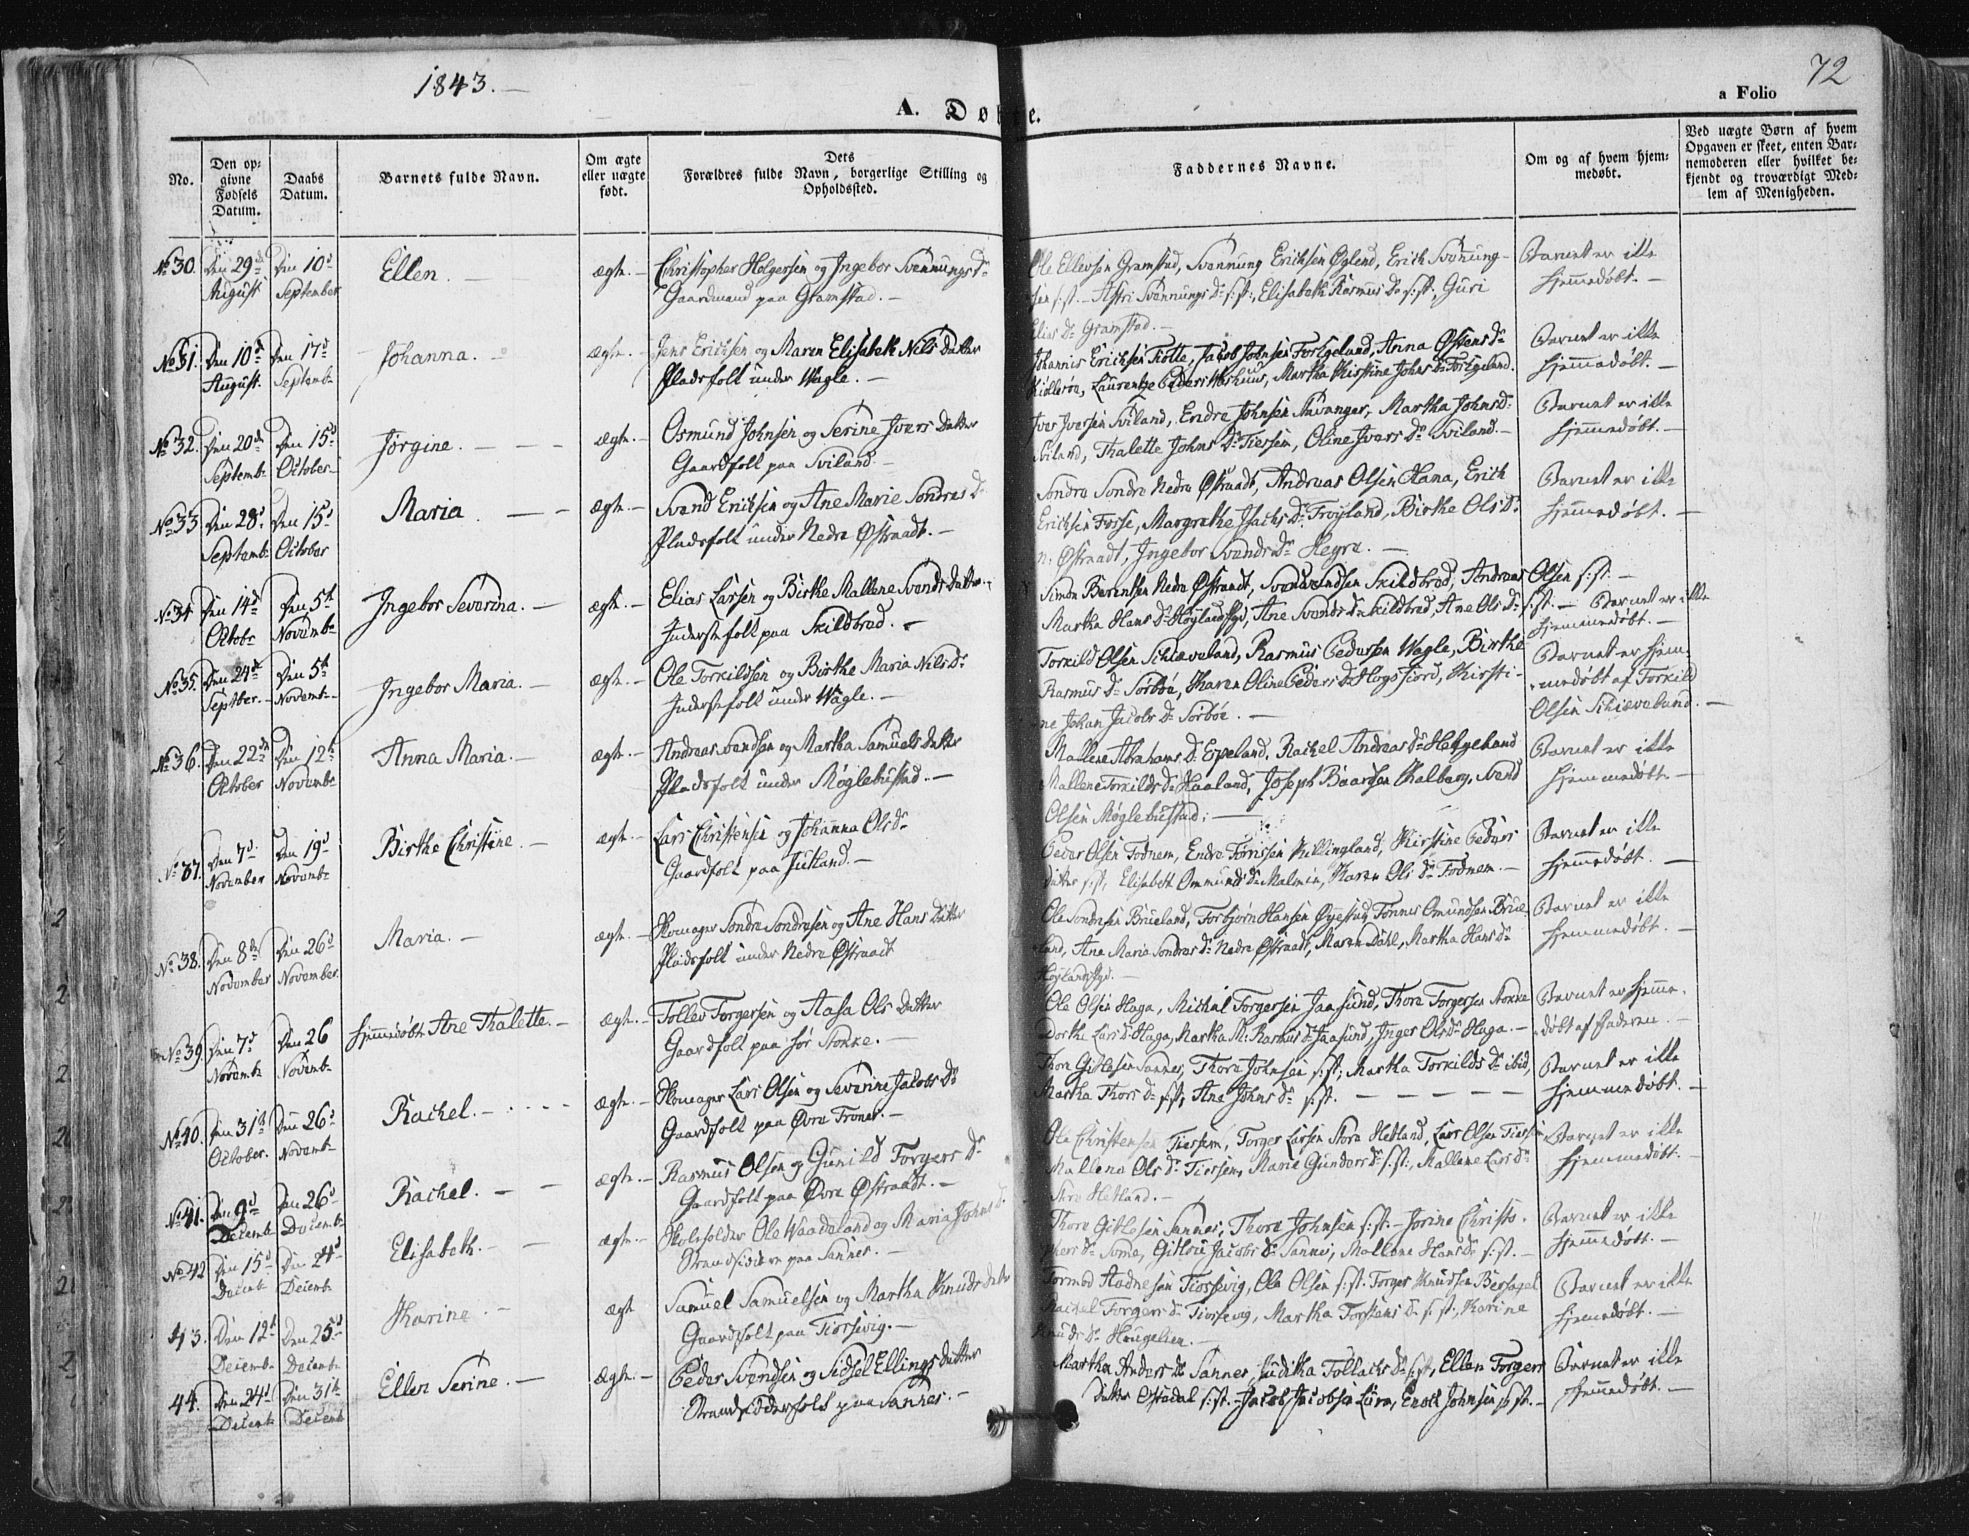 1843.
72
A. Døbte.
a Folio
No.
Den opgivne Fødsels Datum.
Daabs Datum.
Barnets fulde Navn.
Om ægte eller uægte født.
Dets Forældres fulde Navn, borgerlige Stilling og Opholdssted.
Faddernes Navne.
Om og af hvem hjemmedøbt.
Ved uægte Børn af hvem Opgaven er skeet, enten Barnemoderen eller hvilket bekjendt og troværdigt Medlem af Menigheden.
No 30. Den 29de August Den 10d September Ellen. ægte. Christopher Holgersen og Ingebor Svennungs Dr
Gaardmand paa Gramstad.
Ole Ellevsen Gramstad, Svennung Erichsen Øglend, Erich Svennungsen s:st. Astri Svennungs Dr s:st:, Elisabeth Rasmus Dr s:st:, Guri
Elias Dr Gramstad.
Barnet er ikke
hjemmedøbt.
No 31. Den 10d August. Den 17d Septembr Johanna. ægte. Jens Erichsen og Maren Elisabeth Nils Datter
Pladsfolk under Wagle.
Johannis Erichsen Totte, Jacob Johnsen Folgeland, Anna Østens Dr
Laurentze Martha Kirstine Johns Dr Folgeland.
Barnet er ikke
hjemmedøbt.
No 32. Den 20de Septembr Den 15d October Jørgine. ægte. Osmund Johnsen og Serine Ivers Datter
Gaardfolk paa Sviland
Iver Iversen Sviland, Endre Johnsen Stavanger, Martha Johns Dr
Sviland, Thalette Johns Dr Tiessen, Oline Ivers Dr Sviland.
Barnet er ikke
hjemmedøbt.
No 33 Den 28d Septembr Den 15d October Maria ægte. Svend Erichsen og Ane Marie Sondres Dr
Pladsfolk under Nedre Østraadt.
Sondre Sondre Nedre Østraadt, Andreas Olsen Hana, Erich
Erichsen Fosse, Margrethe Isachs Dr Frøyland, Birthe Ols Dr
n. Østraadt, Ingebor Svends Dr Hegre.
Barnet er ikke
hjemmedøbt.
No 34 Den 14d Octobr Den 5te Novembr Ingebor Severina. ægte. Elias Larsen og Birthe Mallene Svends Datter
Inderstefolk paa Skildbred.
Simon Berentsen Nedre Østraadt, Skildbred, Andreas Olsen s:st.
Martha Hans Dr Høyland, Ane Svends Dr Skildbred, Ane Ols Dr s:st. Barnet er ikke
hjemmedøbt.
No 35. Den 24d Septber. Den 5te Novembr Ingebor Maria. ægte. Ole Torkildsen og Birthe Maria Nils Dr
Inderstefolk under Wagle.
Torkild Olsen Schieveland, Rasmus Pedersen Wagle, Birthe
Rasmus Dr Sørbøe, Karen Oline Peders Dr Høgsfiord, Kirstine Johan Jacobs Dr Sørbøe.
Barnet er hjemmedøbt af Torkild
Olsen Schieveland.
No 36. Den 22de October Den 12te Novembr Anna Maria. ægte. Andreas Svendsen og Martha Samuels Datter
Pladsfolk under Møglebustad.
Mallene Abrahams Dr Epeland, Rachel Andreas Dr Helgeland
Mallene Torkilds Dr Haaland, Joseph Baardsen Kalberg, Svend
Olsen Møglebustad.
Barnet er ikke
hjemmedøbt
No 37. Den 7d November Den 19d Novembr Birthe Christine. ægte. Lars Christensen og Johanna Ols Dr
Gaardfolk paa Jutland.
Peder Olsen Fodnem, Endre Killingland, Kirstine Peders
datter s:st, Elisabeth Ommunds Dr Malmin, Karen Ols Dr Fodnem.
Barnet er ikke
hjemmedøbt.
No 38. Den 8de November Den 26d November. Maria. ægte. Skomager Sondre Sondresen og Ane Hans Datter
Pladsfolk under Nedre Østraadt
Ole Sondresen Brueland, Torbjørn Hansen Øyestad, Tønnes Omundsen Brueland, Ane Maria Sondres Dr Nedre Østraadt, Maren Dahl, Martha Hans Dr
Barnet er ikke
hjemmedøbt.
No 39. Den 7d Novembr Den 26 Novembr hjemmedøbt Ane Thalette. ægte. Tollev Torgersen og Aasa Ols Datter
Gaardfolk paa Sør Stokke.
Ole Olsen Haga, Michal Torgersen Jaasund, Thore Torgersen Stokke
Dorthe Lars Dr Haga, Martha M: Rasmus Dr Jaasund, Inger Ols Dr Haga.
Barnet er hjemmedøbt af Faderen.
No 40. Den 31te October. Den 26d Novembr Rachel. ægte. Skomager Lars Olsen og Severine Jacobs Dr
Gaardfolk paa Øvre Trones.
Thore Gitlesen Sannes, Thore Johnsen s:st; Martha Torkilds Dr ibid,
Martha Thors Dr s:st, Ane Johns Dr s:st.
Barnet er ikke
hjemmedøbt.
No 41. Den 9d Decembr Den 26d Decembr Rachel. ægte. Rasmus Olsen og Gunild Torgers Dr
Gaardfolk paa Øvre Østraadt.
Ole Christensen Tiessem, Torger Larsen Store Hetland, Lars Olsen Tiessem
Mallene Ols Dr Tiessem, Marie Gunders Dr s:st:, Mallene Lars Dr
Store Hetland.
Barnet er ikke
hjemmedøbt.
No 42 Den 15d Decembr Den 24d Decembr Elisabeth. ægte. Skoleholder Ole Waadeland og Maria Johns D.
Strandsiddere paa Sannes.
Thore Gitlesen Sannes, Thore Johnsen s:st. Jorine Christophers Dr Some, Jacobs Dr Sannes, Mallene Hans Dr s:st.
Barnet er ikke
hjemmedøbt.
43. Den 12te Decembr Den 25d Decembr Karine ægte Samuel Samuelsen og Martha Knuds datter
Gaardfolk paa Tiorsevig.
Tormod Aadnesen Tiorsevig, Ole Olsen s:st. Torger Knudsen Bersagel
Rachel Torgers Dr Tiorsevig, Martha Torstens Dr s:st., Karine
Knuds Dr Hougelien.
Barnet er ikke
hjemmedøbt.
44. Den 24d Decembr Den 31te Decembr Ellen Serine. ægte. Peder Svendsen og Sidsel Ellings datter
Strandsidderfolk paa Sannes.
Martha Anders Dr Sannes, Juditha Tollachs Dr s:st, Ellen Torgers
datter s:st. Jacob Jacobsen Lura, Enok Johnsen s:st.
Barnet er ikke
hjemmedøbt.